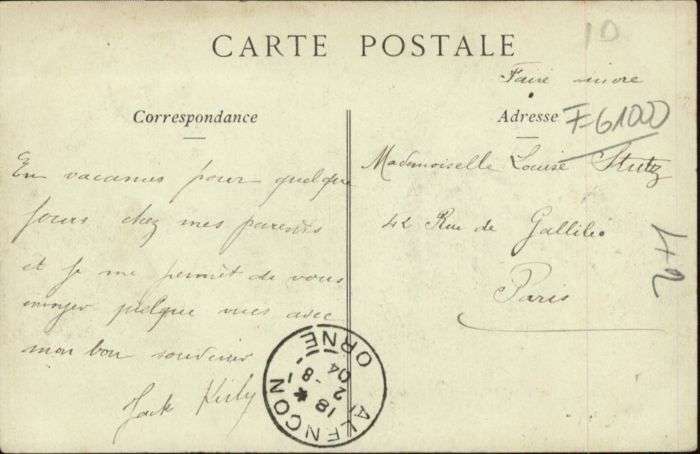 CARTE POSTALE
Correspondance
En vacances pour quelque
jours chez mes parents
et je me permet de vous
envoyer quelque vues avec
mon bon souvenir
Jack
Faire
Adresse
F-61000
Mademoiselle Louise Stutz
42 Rue de Gallileo
Paris
42
10
ALENCON
ORNE
18 *
2 - 8
04